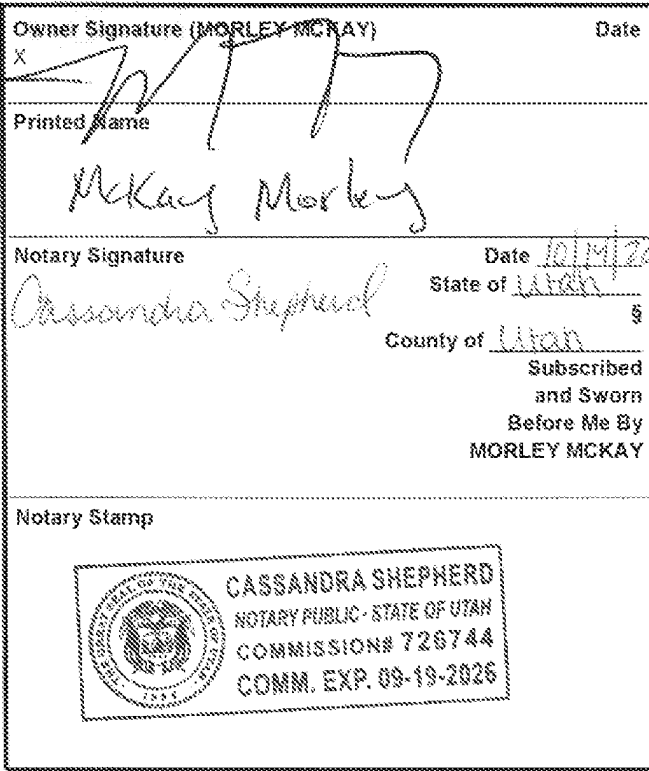 Owner Signature (MORLEY MCKAY) Date
X
Printed Name
McKay Morley
Notary Signature Date 10/14/20
Cassandra Shepherd State of Utah
§
County of Utah
Subscribed
and Sworn
Before Me By
MORLEY MCKAY
Notary Stamp
THE GREAT SEAL OF THE STATE OF UTAH
1896
CASSANDRA SHEPHERD
NOTARY PUBLIC - STATE OF UTAH
COMMISSION# 726744
COMM. EXP. 09-19-2026